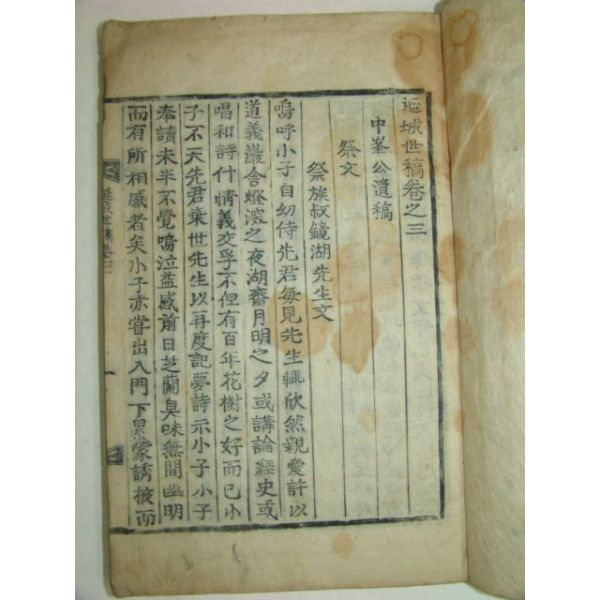 延城世稿卷之三
中峯公遺稿
祭文
祭族叔鏡湖先生文
嗚呼小子自幼侍先君每見先生輒欣然親愛許以
道義巖舍燈深之夜湖齋月明之夕或講論經史或
唱和詩什情義交孚不但有百年花樹之好而已小
子不天先君棄世先生以再度記夢詩示小子小子
奉讀未半不覺嗚泣益感前日芝蘭臭味無間幽明
而有所相感者矣小子亦嘗出入門下累蒙誘掖而
延城世稿卷三